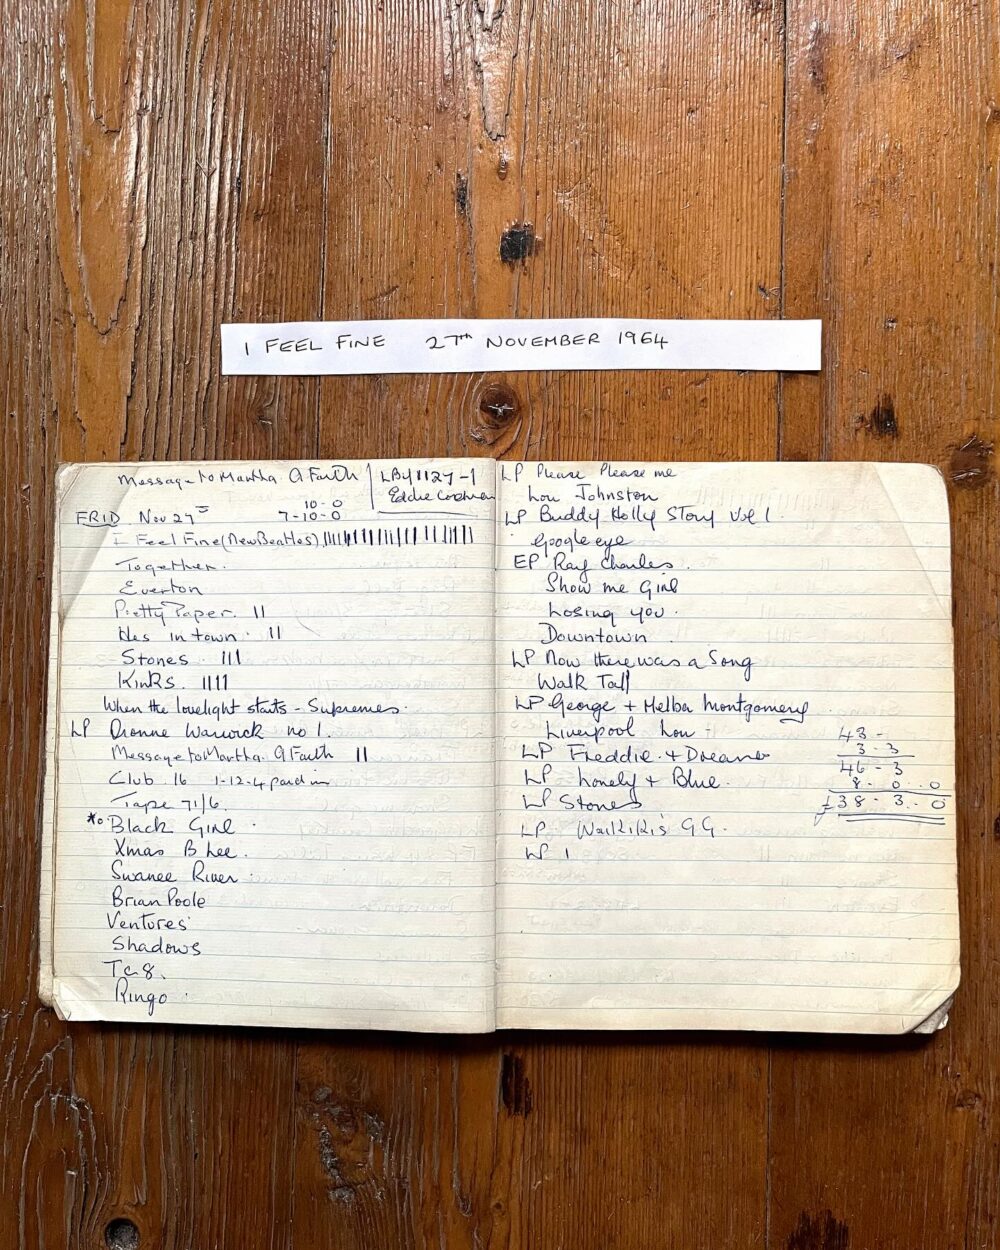 I FEEL FINE 27TH NOVEMBER 1964
Message to Martha A Faith
LBY 1127-1
Eddie Cochran
10-0
FRID Nov 27 7-10-0
I Feel Fine (New Beatles) ||||||||||||||||||
Together.
Everton
Pretty Paper. ||
Hes in town. ||
Stones. |||
Kinks. ||||
When the lovelight starts - Supremes.
LP Dionne Warwick no 1.
Message to Martha. A Faith ||
Club 16 1-12-4 paid in
Tape 71/6.
*o Black Girl.
Xmas B Lee.
Swanee River.
Brian Poole
Ventures
Shadows
Tc 8.
Ringo.
LP Please Please me
Lou Johnston
LP Buddy Holly Story Vol 1.
Google eye
EP Ray Charles.
Show me Girl
Losing you.
Downtown.
LP Now there was a Song
Walk Tall
LP George + Melba Montgomery
Liverpool Lou
LP Freddie + Dreamers
LP Lonely + Blue.
LP Stones
LP Waikikis GG.
LP 1
43 -
3.3
46-3
8-0..0
£38-3..0